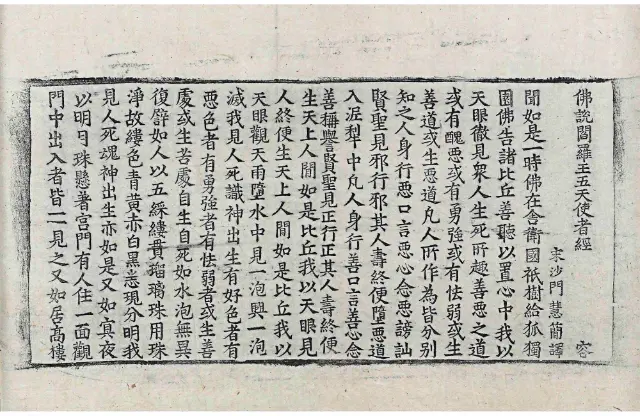 佛說閻羅王五天使者經
宋沙門 慧蕳譯 容
聞如是一時佛在舍衛國祇樹給孤獨
園佛告諸比丘善聽以置心中我以
天眼徹見衆人生死所趣善惡之道
或有醜惡或有勇強或有怯弱或生
善道或生惡道凡人所作為皆分別
知之人身行惡口言惡心念惡謗訕
賢聖見邪行邪其人壽終便墮惡道
入泥犁中凡人身行善口言善心念
善稱譽賢聖見正行正其人壽終便
生天上人間如是比丘我以天眼見
人終便生天上人間如是比丘我以
天眼觀天雨墮水中見一泡興一泡
滅我見人死識神出生有好色者有
惡色者有勇強者有怯弱者或生善
處或生苦處自生自死如水泡無異
復譬如人以五綵縷貫瑠璃珠用珠
淨故縷色青黃赤白黑悉現分明我
見人死魂神出生亦如是又如冥夜
以明月珠懸著宮門有人住一面觀
門中出入者皆一一見之又如居高樓